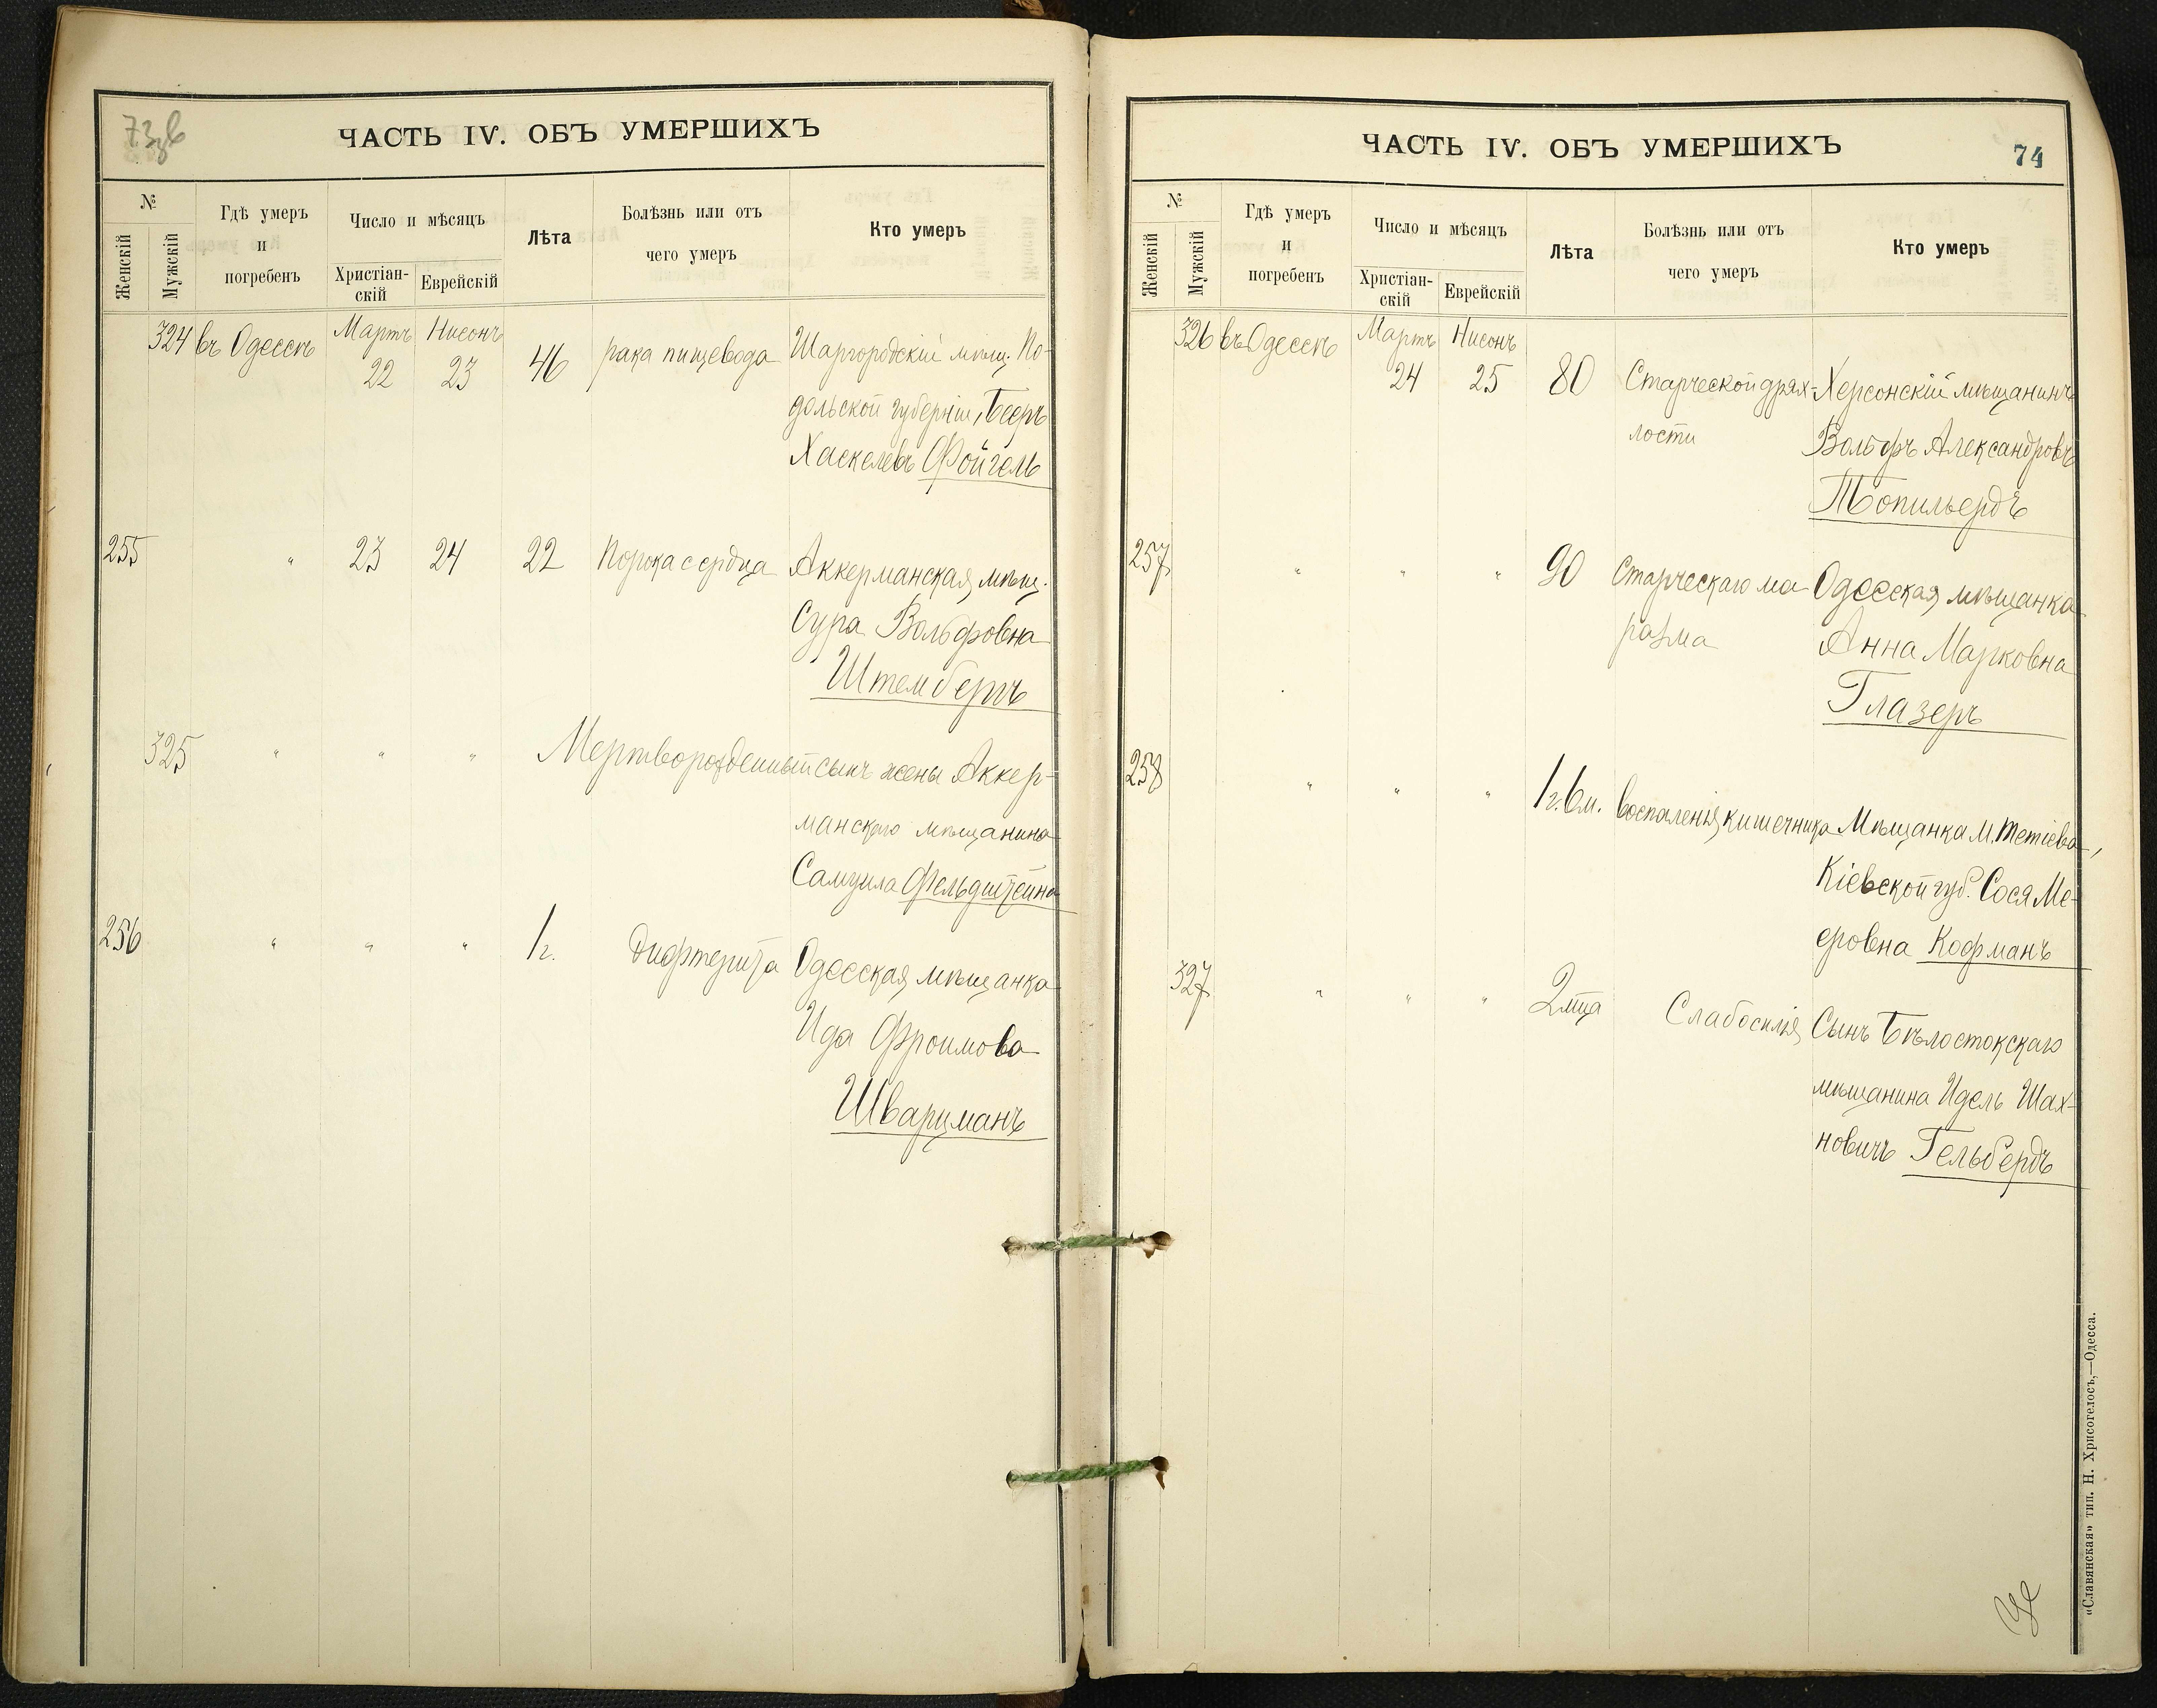 73 об
ЧАСТЬ IV. ОБЪ УМЕРШИХЪ
№
Женскій
Мужскій
Гдѣ умеръ
и
погребенъ
Число и мѣсяцъ
Христіан-
скій
Еврейскій
Лѣта
Болѣзнь или отъ
чего умеръ
Кто умеръ
324 въ Одессѣ Мартъ 22 Нисонъ 23 46 рака пищевода Шаргородскій мѣщ. По-
дольской губерніи, Беръ
Хаскелевъ Фойгель
255 " 23 24 22 Порока сердца Аккерманская мѣщ.
Сура Вольфовна
Штембергъ
325 " " " Мертворожденный сынъ жены Аккер-
манскаго мѣщанина
Самуила Фельдштейна
256 " " " 1 г. Дифтерита Одесская мѣщанка
Ида Фроимова
Шварцманъ
ЧАСТЬ IV. ОБЪ УМЕРШИХЪ
74
№
Женскій
Мужскій
Гдѣ умеръ
и
погребенъ
Число и мѣсяцъ
Христіан-
скій
Еврейскій
Лѣта
Болѣзнь или отъ
чего умеръ
Кто умеръ
326 въ Одессѣ Мартъ 24 Нисонъ 25 80 Старческой дрях- Херсонскій мѣщанинъ
лости Вольфъ Александровъ
257 " " " 90 Старческаго ма- Одесская мѣщанка
разма Анна Марковна
Глазеръ
258 " " " 1 г. 6 м. воспаленія кишечника Мѣщанка м. Тетіева,
Кіевской губ. Сося Ме-
еровна Кофманъ
327 " " " 2 мца Слабосилія Сынъ Бѣлостокскаго
мѣщанина Идель Шах-
новичъ Гельбердъ
«Славянская» тип. Н. Хрисогелосъ,—Одесса.